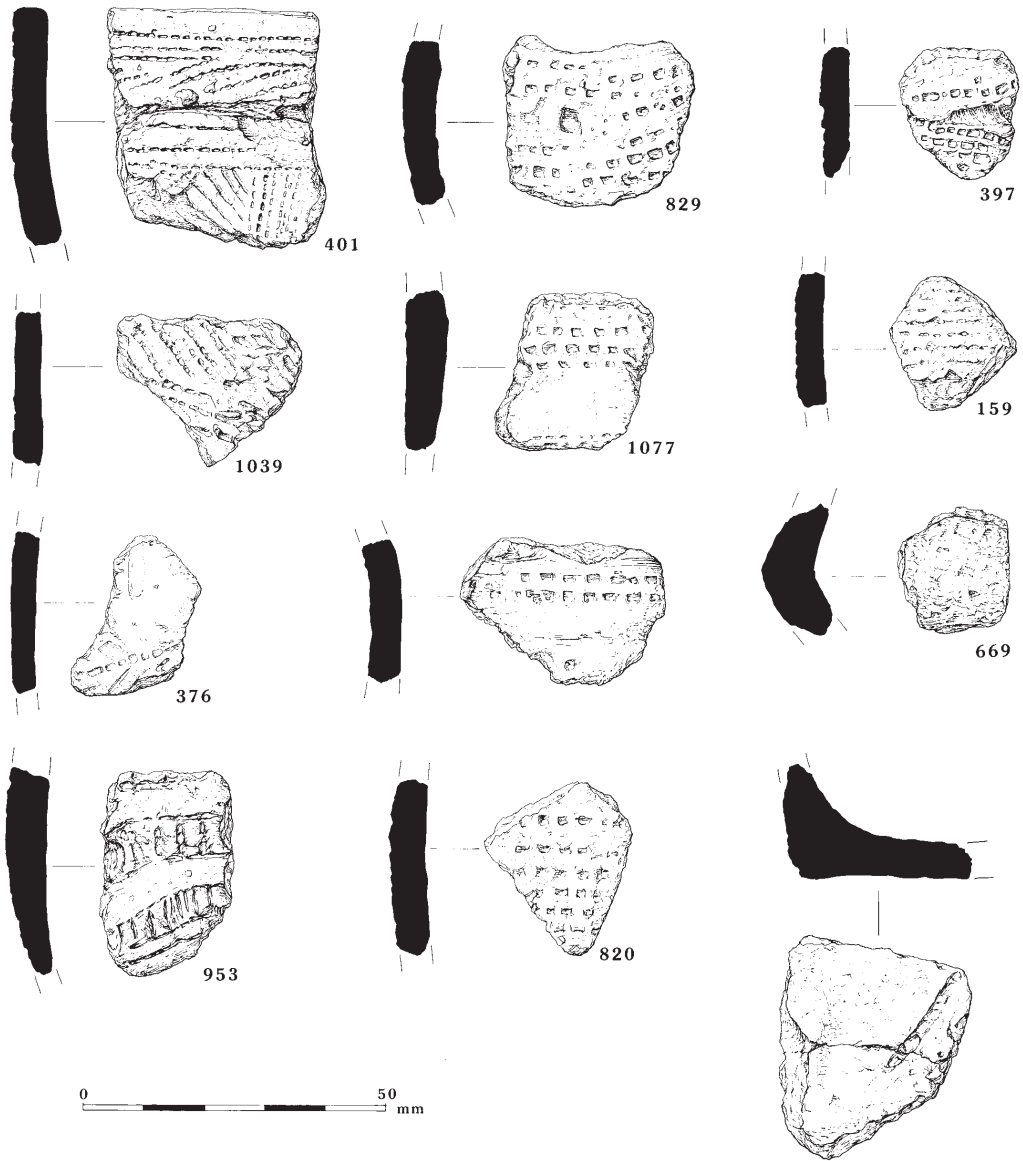 401
829
397
1039
1077
159
376
669
953
820
0 50
mm